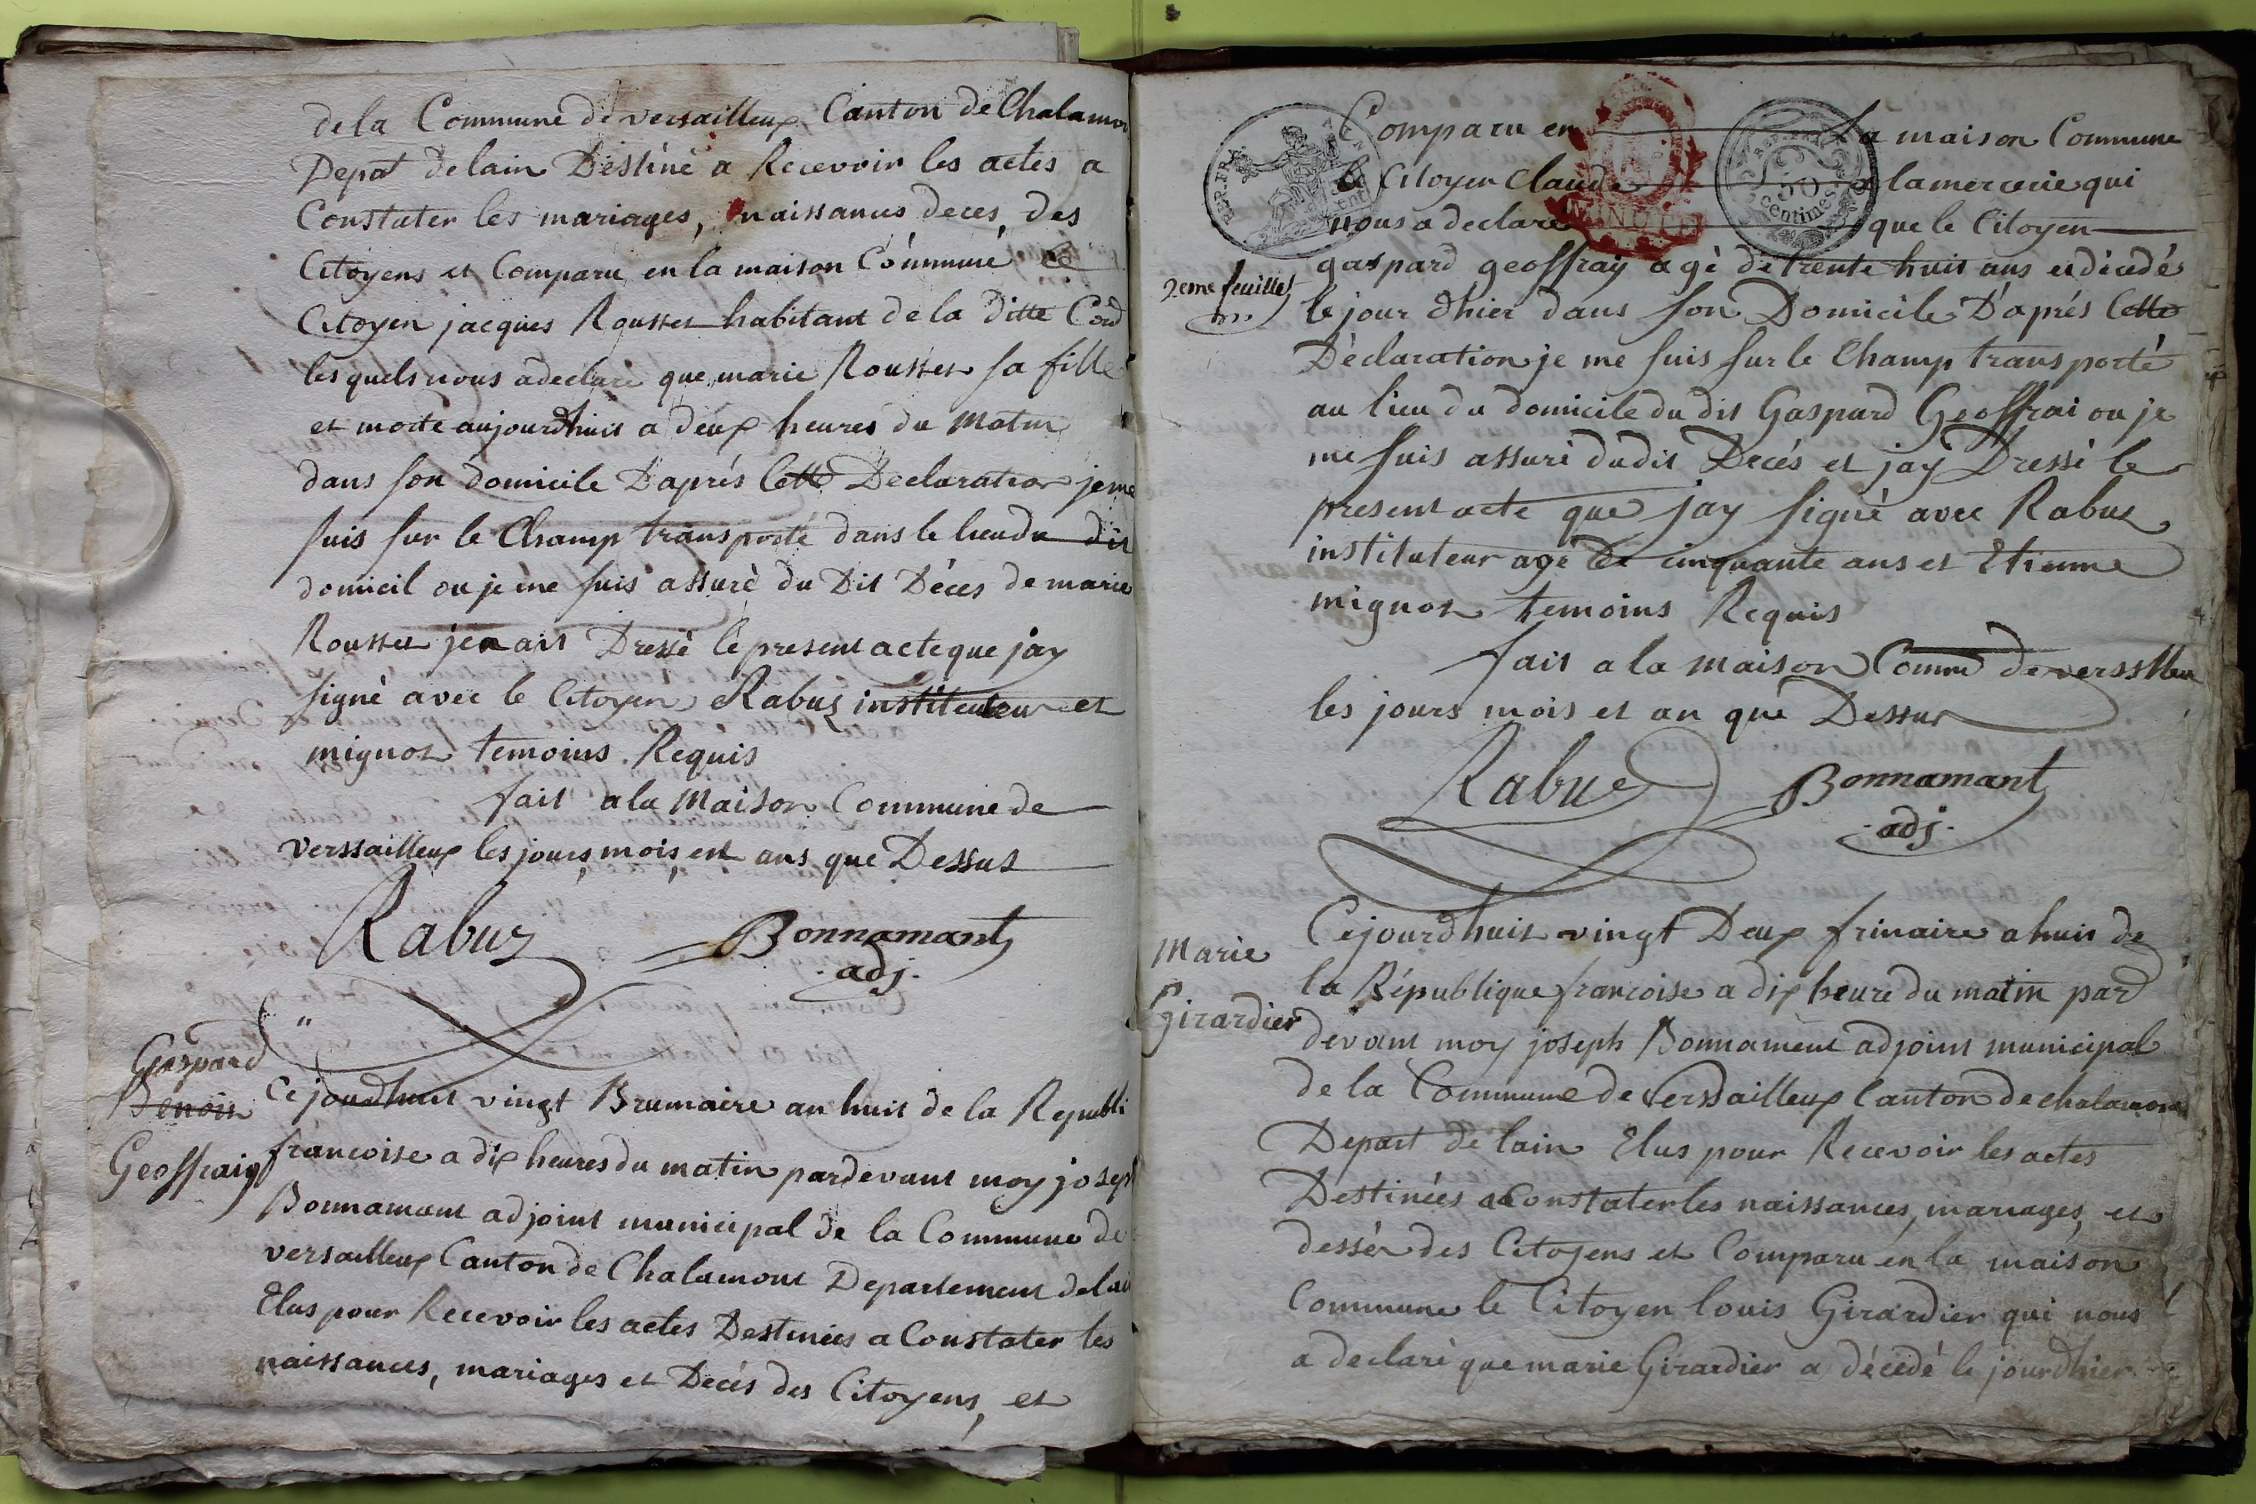 de la Commune de versailleux Canton de Chalamon
Depat delain Déstiné a Recevoir les actes a
Constater les mariages, naissances deces, des
Citoyens et Comparu en la maison Commune, le
Citoyen jacques Rousset habitant de la ditte Com
les quels nous adeclare que marie Rousset sa fille
et morte aujourdhuit a deux heures du matin
dans son domicile Daprés Cette Declaration je me
suis sur le Champ transporté dans le lieu du dit
domicil ou je me suis assuré du Dit Déces de marie
Rousset jen ait Dressé le present acte que jay
signé avec le Citoyen Rabuz instituteur et
mignot temoins Requis
fait a la Maison Commune de
verssailleux les jours, mois, et ans que Dessus
Rabuz Bonnamant
adj.
Gaspard
Benoit
Geoffraiy
Ce jourdhuit vingt Brumaire an huit de la Republi
francoise a dix heures du matin pardevant moy joseph
Bonnamant adjoint municipal de la Commune de
versailleux Canton de Chalamont Departement delain
Elus pour Recevoir les actes Destinées a Constater les
naissances, mariages et Décés des Citoyens, et
REP.FRA.
50
centimes
Comparu en la maison Commune
le Citoyen Claude lamercerie qui
nous a declaré que le Citoyen
2eme feuillet
gaspard geoffray agé de trente huit ans et décedé
le jour dhier dans son Domicile Daprés Cette
Déclaration je me suis sur le Champ transporté
au lieu du domicile du dit Gaspard Geoffrai ou je
me suis assuré dudit Decés et jay Dressé le
present acte que jay signé avec Rabuz
instituteur agé de cinquante ans et Etienne
mignot temoins Requis
fait a la maison Comme de verssileu
les jours mois et an que Dessus
Rabuz Bonnamant
adj.
Marie
Girardier
Cejourdhuit vingt Deux frimaire a huit de
la République francoise a dix heure du matin par
devant moy joseph Bonnament adjoint municipal
de la Commune de Verssailleux Canton de chalamon
Depart de lain Elus pour Recevoir les actes
Destinées a Constater les naissances, mariages, et
dessés des Citoyens et Comparu en la maison
Commune le Citoyen louis Girardier qui nous
a declaré que marie Girardier a décédé le jourdhier